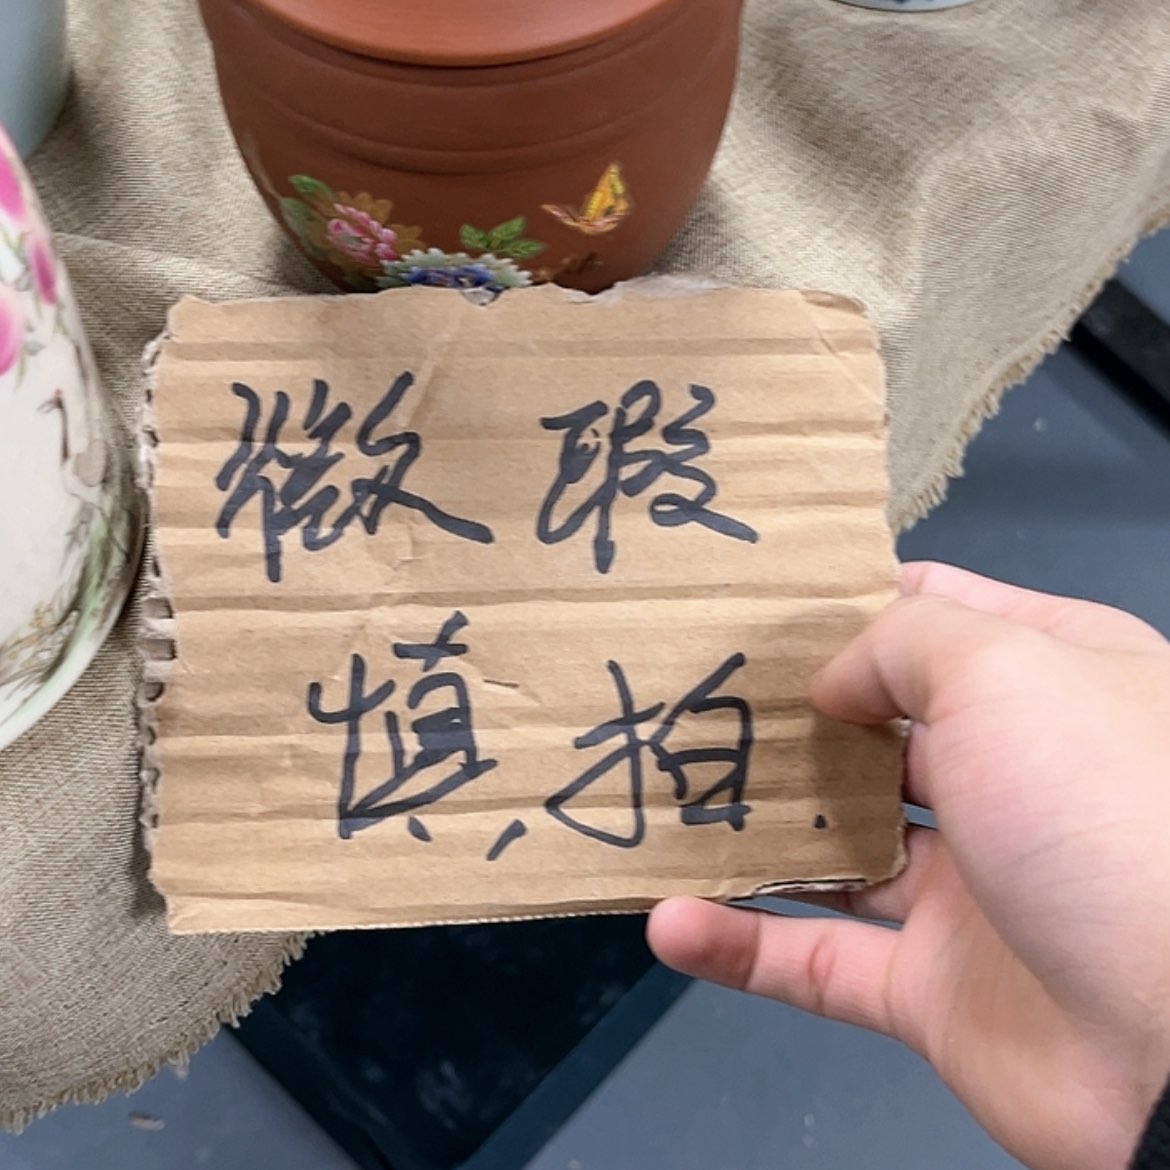 微瑕
慎拍.